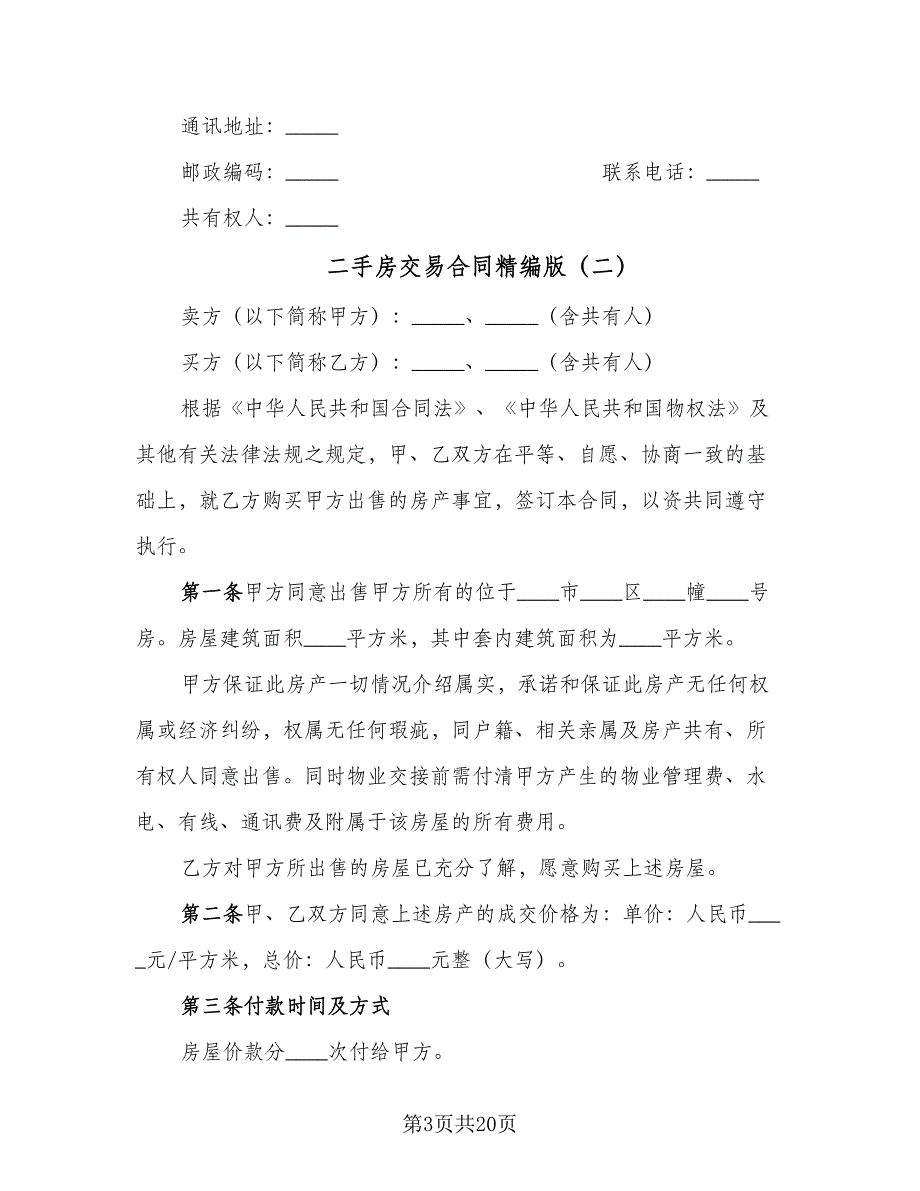 通讯地址：_____
邮政编码：_____ 联系电话：_____
共有权人：_____
二手房交易合同精编版（二）
卖方（以下简称甲方）：_____、_____（含共有人）
买方（以下简称乙方）：_____、_____（含共有人）
根据《中华人民共和国合同法》、《中华人民共和国物权法》及
其他有关法律法规之规定，甲、乙双方在平等、自愿、协商一致的基
础上，就乙方购买甲方出售的房产事宜，签订本合同，以资共同遵守
执行。
第一条甲方同意出售甲方所有的位于____市____区____幢____号
房。房屋建筑面积____平方米，其中套内建筑面积为____平方米。
甲方保证此房产一切情况介绍属实，承诺和保证此房产无任何权
属或经济纠纷，权属无任何瑕疵，同户籍、相关亲属及房产共有、所
有权人同意出售。同时物业交接前需付清甲方产生的物业管理费、水
电、有线、通讯费及附属于该房屋的所有费用。
乙方对甲方所出售的房屋已充分了解，愿意购买上述房屋。
第二条甲、乙双方同意上述房产的成交价格为：单价：人民币___
_元/平方米，总价：人民币____元整（大写）。
第三条付款时间及方式
房屋价款分____次付给甲方。
第3页共20页